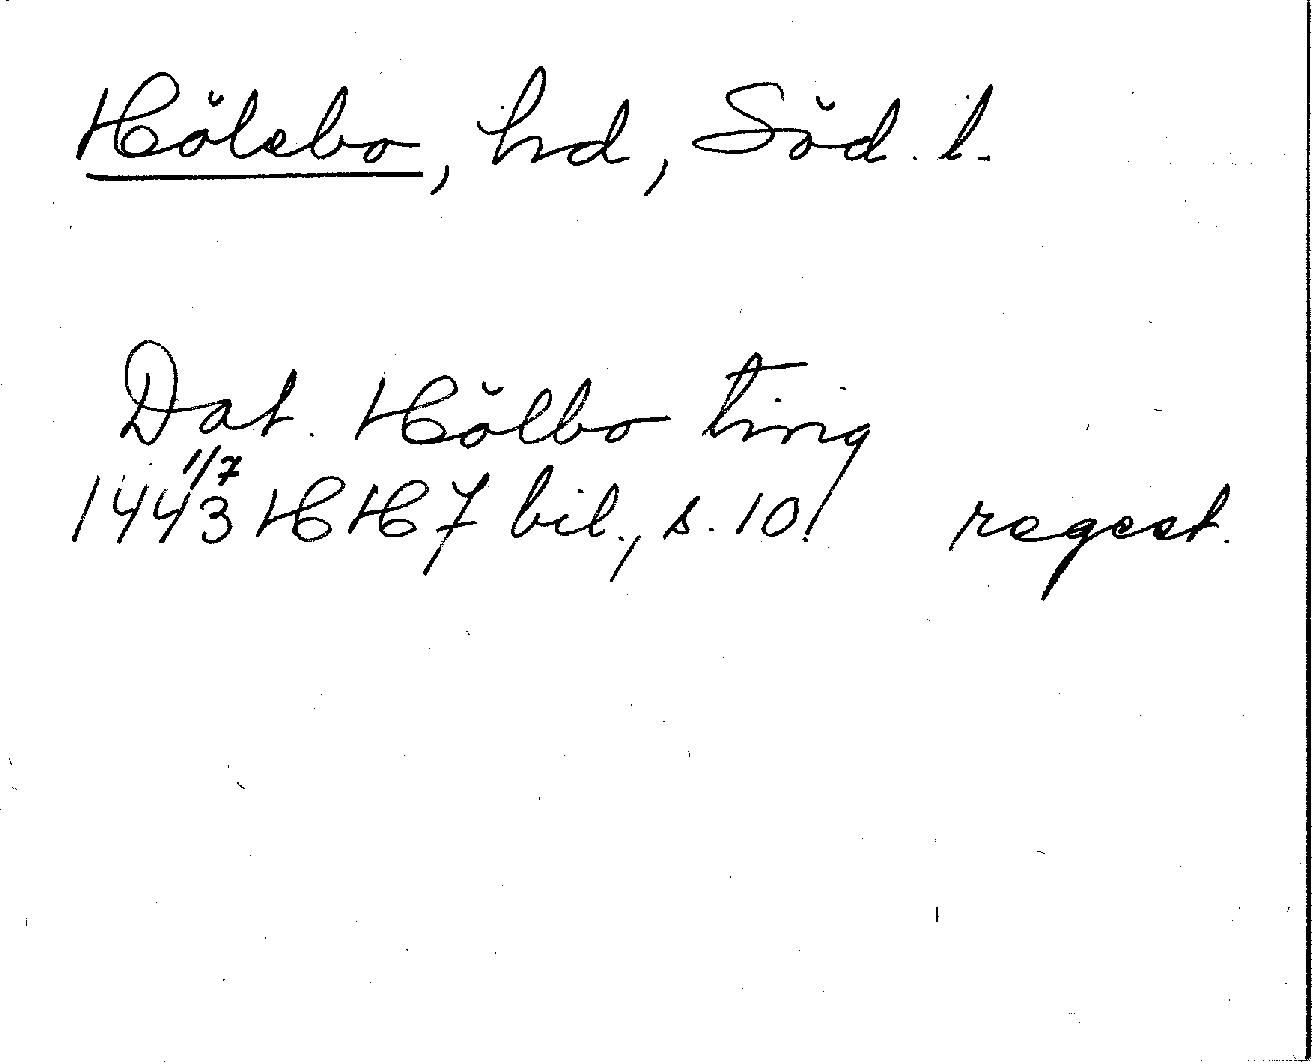 Hölebo, hd, Söd. l.
Dat. Hölbo ting
1443 1/7 HH 7 bil., s. 10! regest.